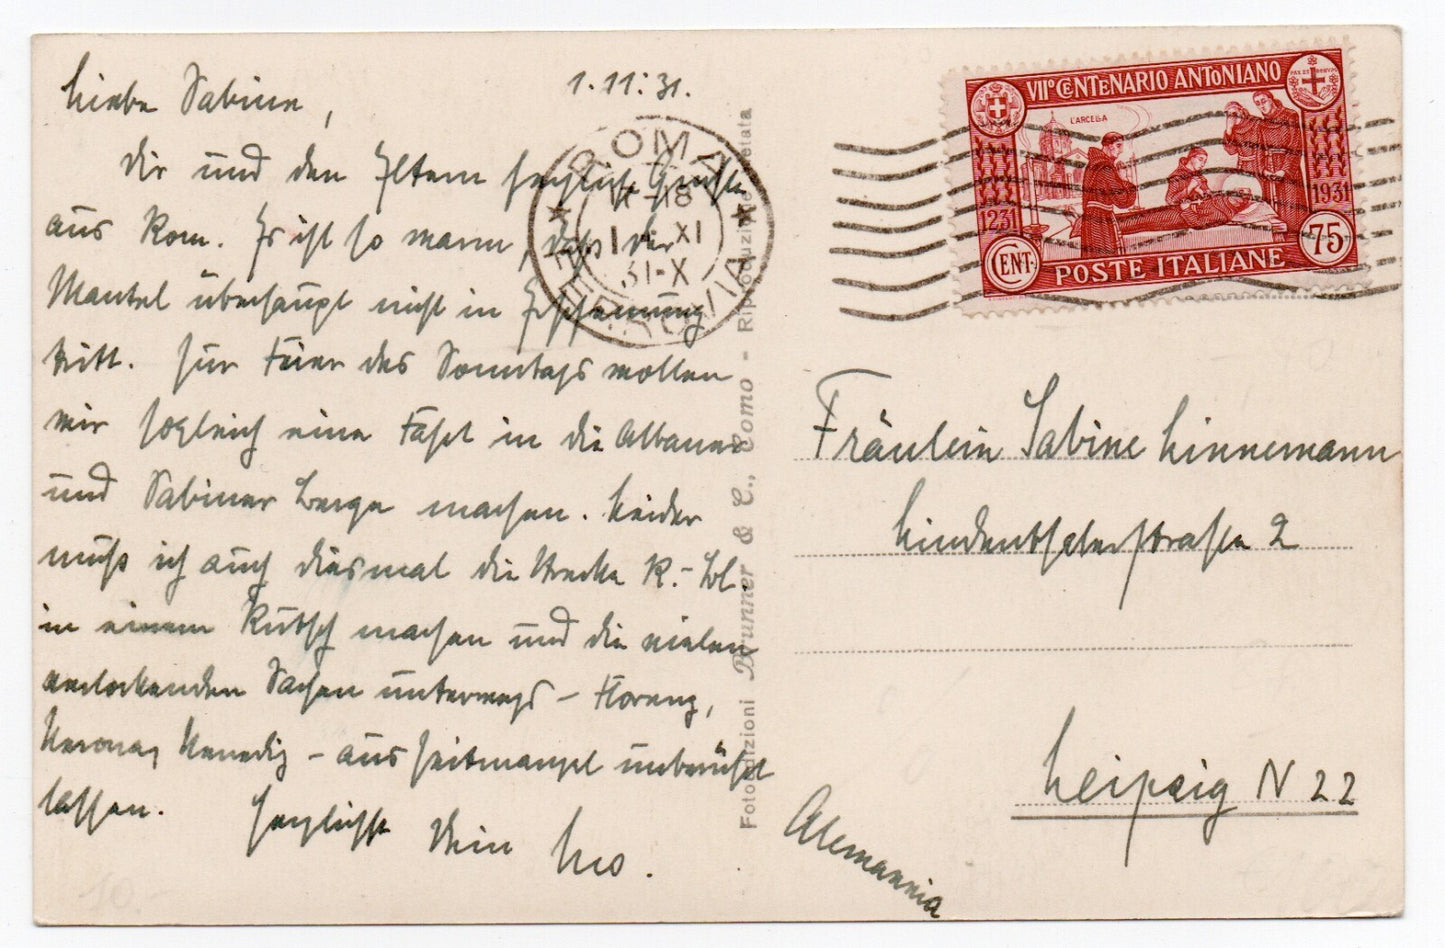 1.11.31.
Liebe Sabine,
Dir und den Eltern herzliche Grüße
aus Rom. Es ist so warm, daß der
Mantel überhaupt nicht in Erscheinung
tritt. Zur Feier des Sonntags wollen
wir sogleich eine Fahrt in die Albaner
und Sabiner Berge machen. Leider
muß ich auch diesmal die Strecke R.-Bl.
in einem Rutsch machen und die vielen
verlockenden Sachen unterwegs – Florenz,
Verona, Venedig – aus Zeitmangel unberührt
lassen. Herzlichst Dein
Fotoedizioni Brunner & C., Como - Riproduzione vietata
ROMA
17-18
1 XI
31-X
FERROVIA
VIIº CENTENARIO ANTONIANO
L'ARCELLA
1231
1931
CENT.
75
POSTE ITALIANE
Fräulein Sabine Linnemann
Lindenthalerstraße 2
Leipzig N 22
Alemannia
10.-